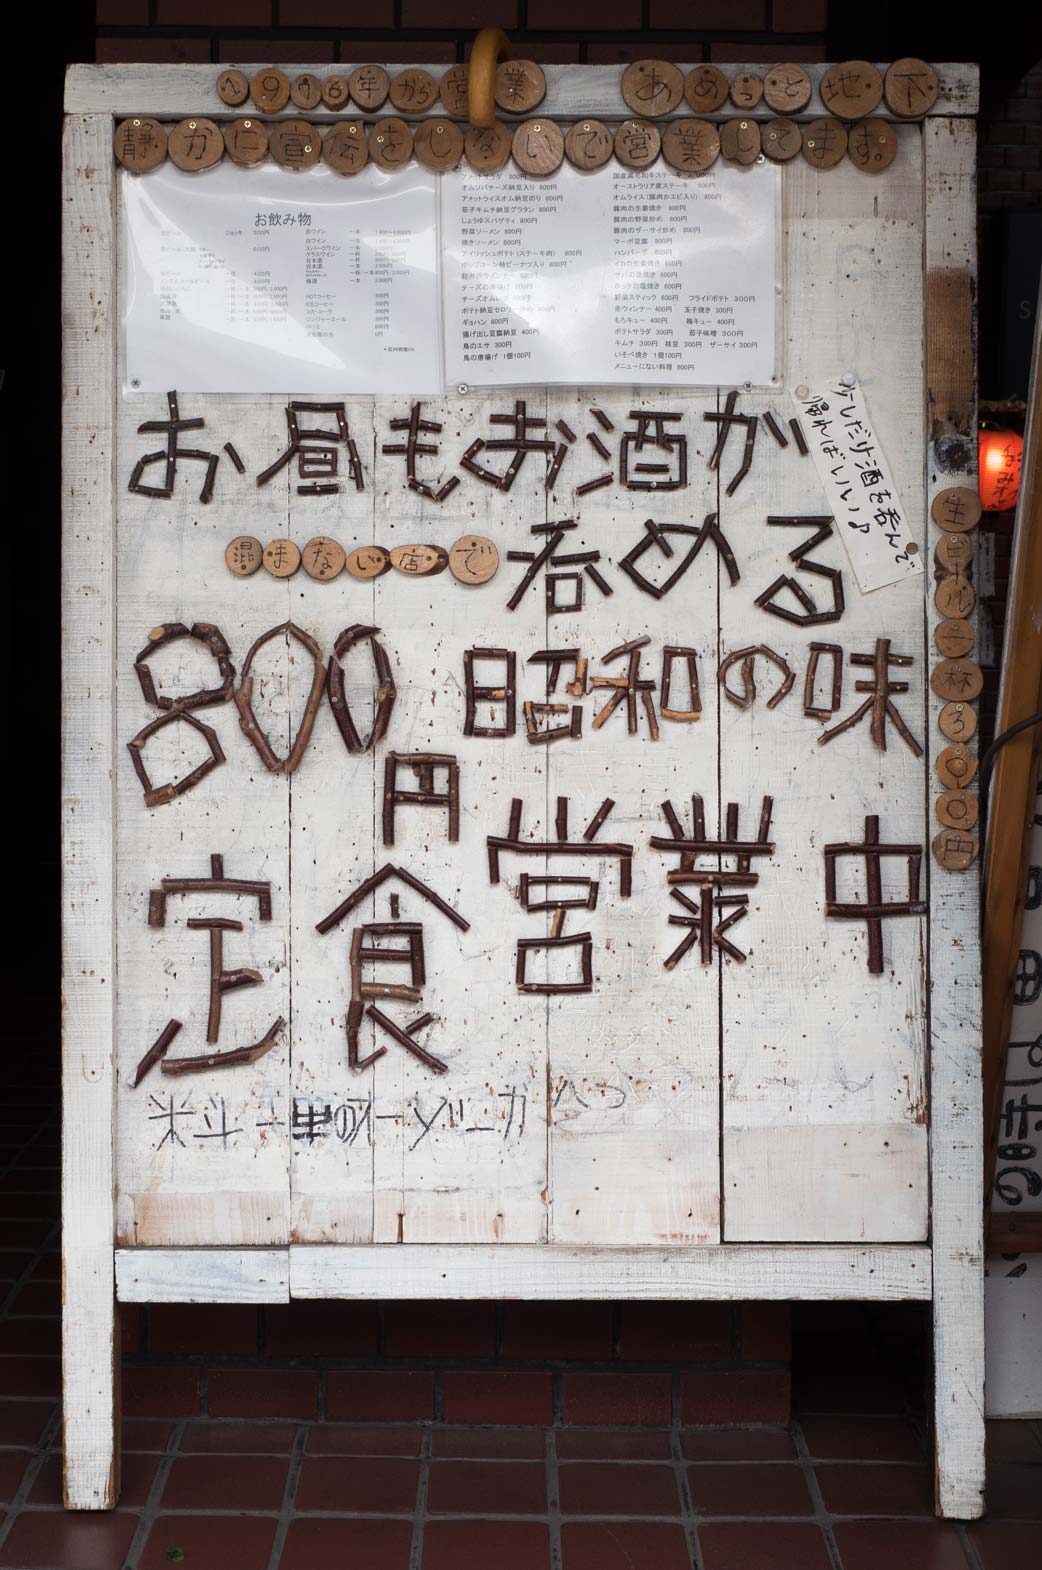 1976年から営業 あめっと地下
静かに宣伝をしないで営業してます。
お飲み物
ジョッキ 500円
600円
赤ワイン 一本
白ワイン 一本
スパークワイン 一本
グラスワイン 一杯
日本酒 一本
日本酒 一本
梅酒 一本
HOTコーヒー 300円
ICEコーヒー 300円
コカ・コーラ 300円
ジンジャーエール 300円
アメットサラダ 800円
オムソバチーズ納豆入り 800円
アメットライスオム納豆のり 800円
茄子キムチ納豆グラタン 800円
しょうゆスパゲティ 800円
野菜ソーメン 800円
焼きソーメン 800円
アイリッシュポテト(ステーキ肉) 800円
ポップコーン柿ピーナツ入り 800円
軽井沢ウインナー 600円
チーズの唐揚げ
チーズオムレツ
ポテト納豆セロリー
ギョハン 600円
揚げ出し豆腐納豆 400円
鳥のエサ 300円
鳥の唐揚げ 1個100円
国産黒毛和牛ステーキ
オーストラリア産ステーキ 800円
オムライス(豚肉かエビ入り) 800円
豚肉の生姜焼き 800円
豚肉の野菜炒め 800円
豚肉のザーサイ炒め 800円
マーボ豆腐 800円
ハンバーグ 800円
イカの生姜焼き 600円
サバの塩焼き 600円
ホッケの塩焼き 600円
野菜スティック 600円 フライドポテト 300円
赤ウィンナー 400円 玉子焼き 300円
もろキュー 400円 梅キュー 400円
ポテトサラダ 300円 茄子味噌 300円
キムチ 300円 枝豆 300円 ザーサイ 300円
いそべ焼き 1個100円
メニューにない料理 800円
お昼もお酒が
混まない店で呑める
少しだけ酒を呑んで
帰ればいい
800円
昭和の味
定食
営業中
生ビール一杯300円